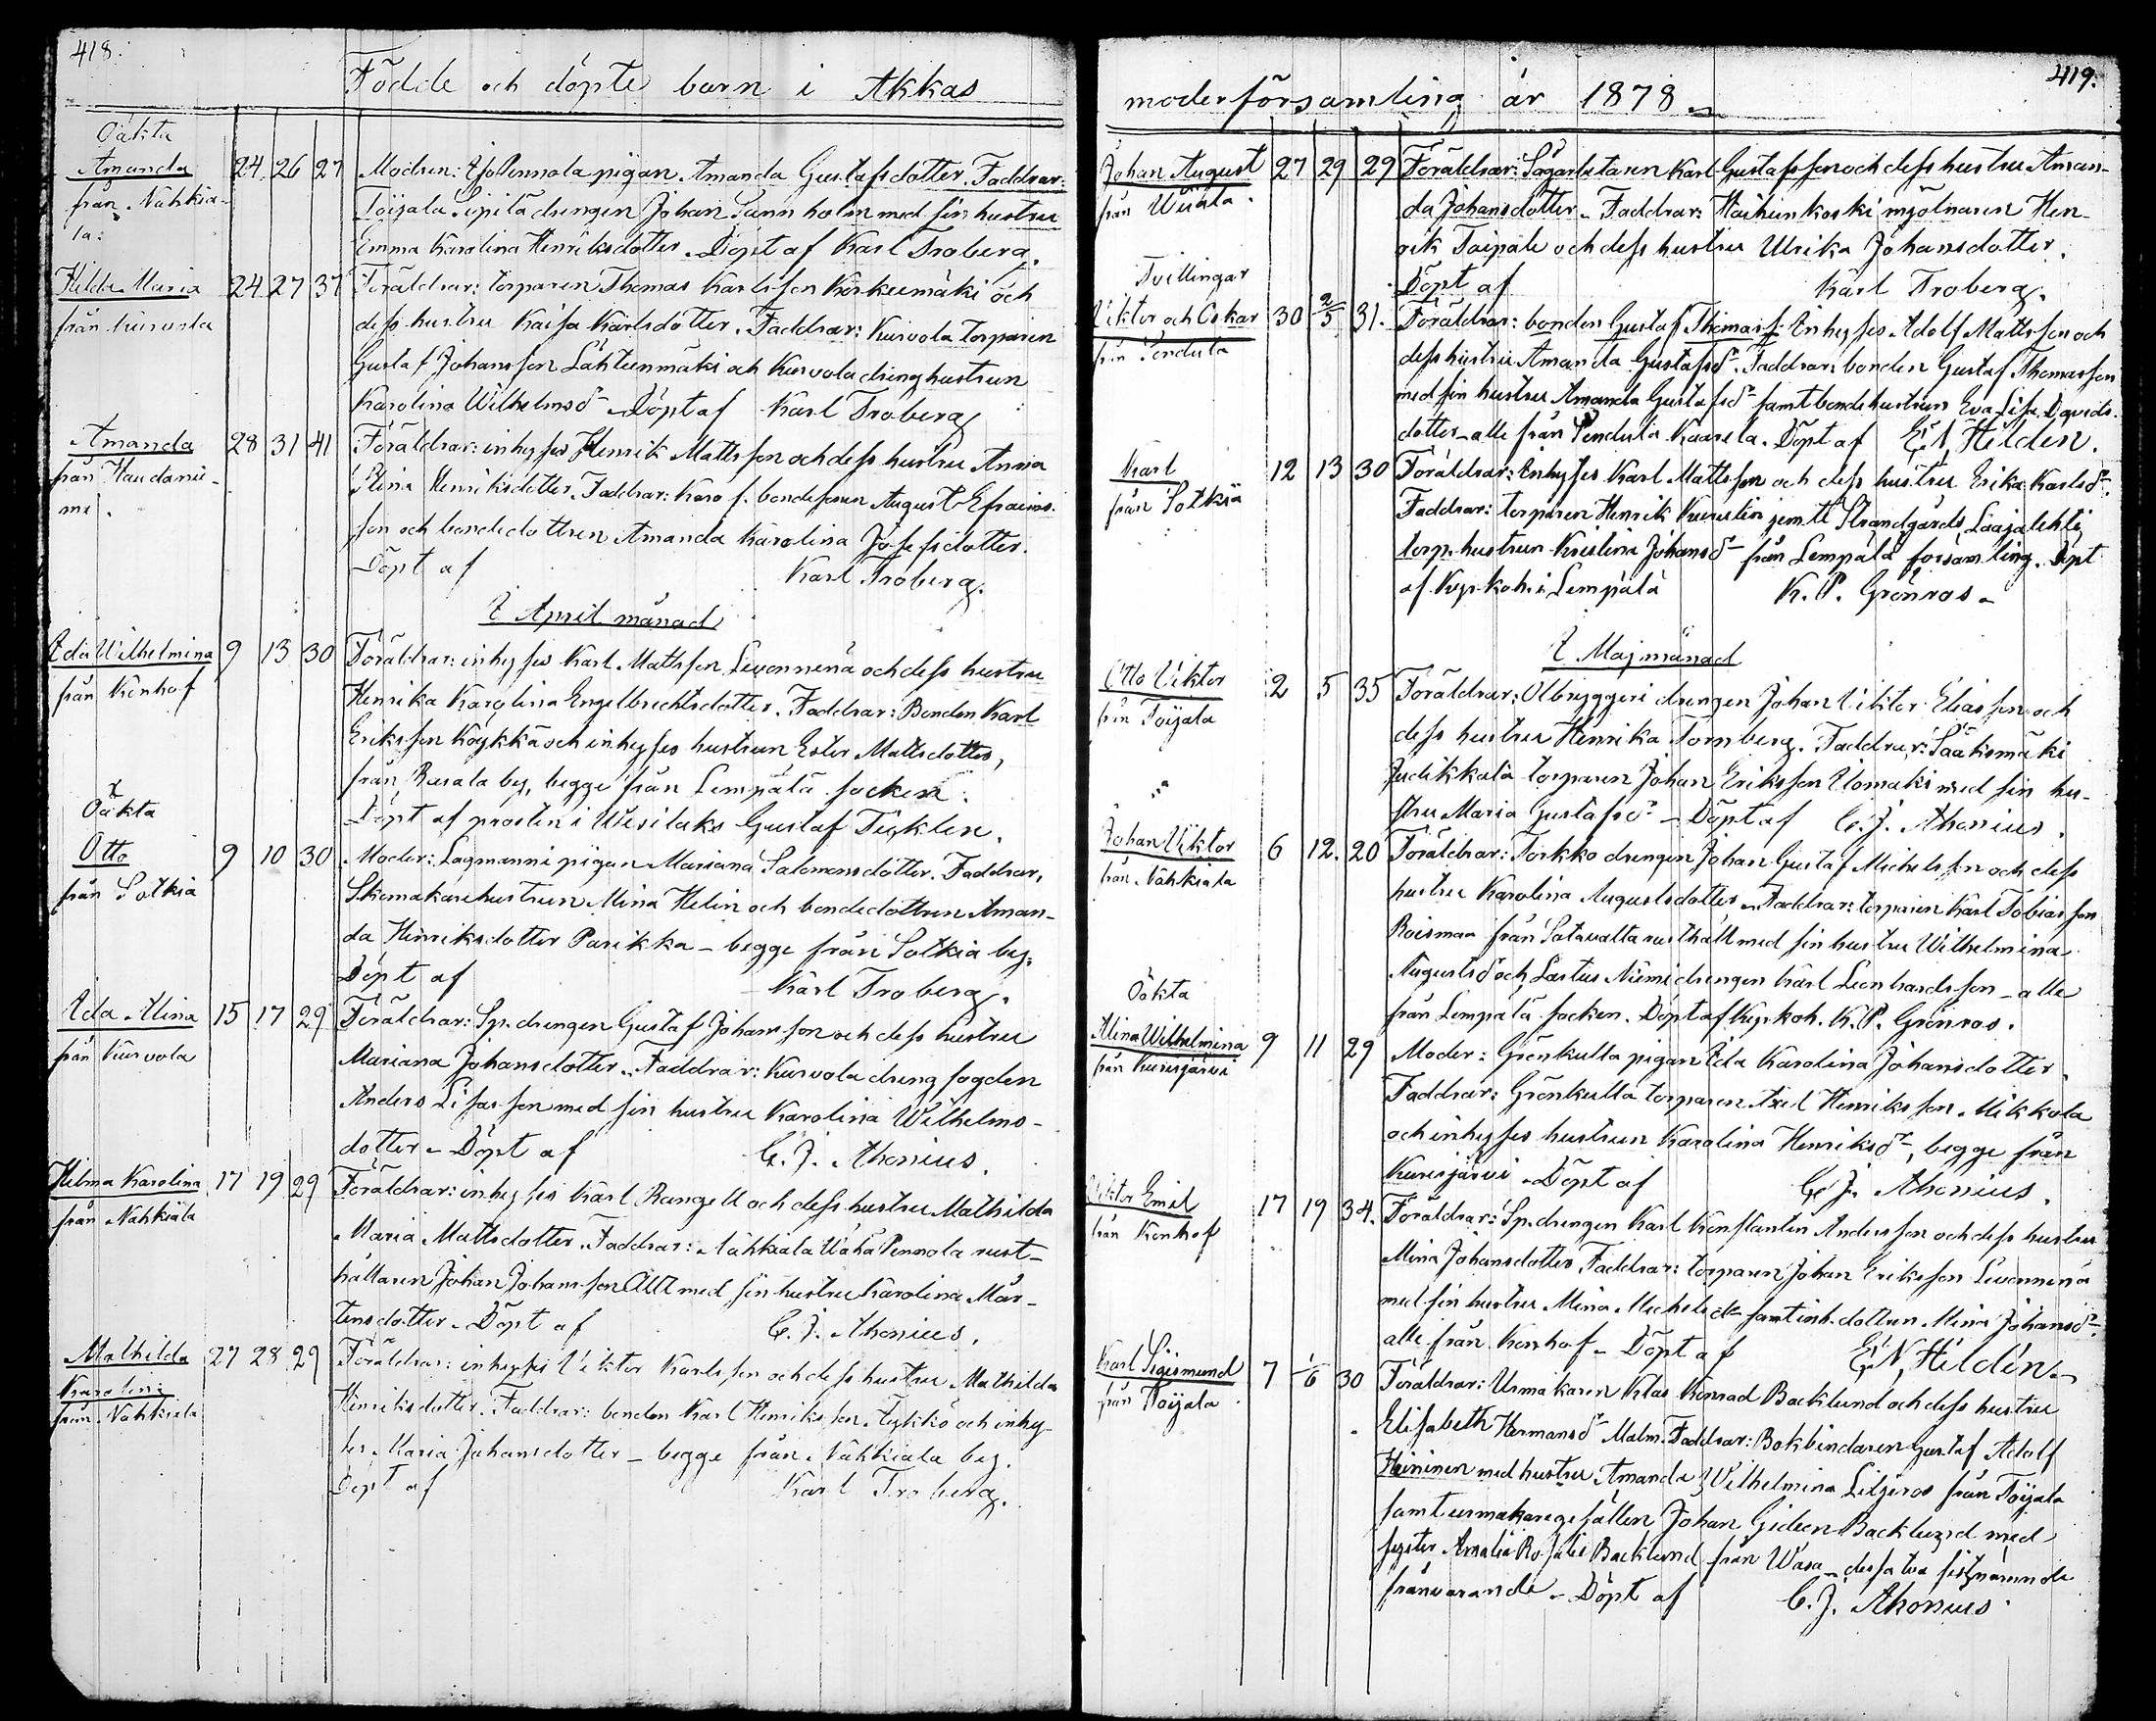 418.
Födde och döpte barn i Akkas
Oäkta
Amanda 24 26 27 Modren: Yli Pennola pigan Amanda Gustafsdotter. Faddrar:
från Nahkia- Toijala Sipilä drengen Johan Sannholm med sin hustru
la: Emma Karolina Henriksdotter. Döpt af Karl Froberg.
Hilda Maria 24 27 37 Föräldrar: torparen Thomas Karlsson Korkeemäki och
från Kurvola dess hustru Kaisa Karlsdotter. Faddrar: Kurvola torparen
Gustaf Johansson Lähteenmäki och Kurvola drenghustrun
Karolina Wilhelmsdr Döpt af Karl Froberg
Amanda 28 31 41 Föräldrar: inhyses Henrik Mattsson och dess hustru Anna
från Haudanie- Stina Henriksdotter. Faddrar: Karo f. bondesonen August Efraims-
mi. son och bondedottren Amanda Karolina Josefsdotter.
Döpt af Karl Froberg.
I April månad
Ida Wilhelmina 9 13 30 Föräldrar: inhyses Karl Mattsson Levonnenä och dess hustru
från Konhof Henrika Karolina Engelbrechtsdotter. Faddrar: Bonden Karl
ErikssonKöykkä och inhyses hustrun Ester Mattsdotter,
från Kusala by, begge från Lempälä socken.
Oäkta Döpt af prosten i Wesilaks Gustaf Ticklén.
Otto 9 10 30 Moder: Lagmanni pigan Mariana Salomonsdotter. Faddrar,
från Sotkia Skomakarehustrun Mina Helin och bondedottren Aman-
da Henriksdotter Parikka – begge från Sotkia by.
Döpt af Karl Froberg.
Ida Alina 15 17 29 Föräldrar: Sp. drengen Gustaf Johansson och dess hustru
från Kurvola Mariana Johansdotter. Faddrar: Kurvola drengfogden
Anders Lisasson med sin hustru Karolina Wilhelms-
dotter – Döpt af C. J. Ahonius.
Helma Karolina 17 19 29 Föräldrar: inhyses Karl Rangell och dess hustru Mathilda
från Nahkiala Maria Mattsdotter. Faddrar: Nahkiala Wähä Pennola rust-
hållaren Johan Johansson Alli med sin hustru Karolina Mår-
tensdotter. Döpt af C. J. Ahonius.
Mathilda 27 28 29 Föräldrar: inhyses Viktor Karlsson och dess hustru Mathilda
Karolina Henriksdotter. Faddrar: bonden Karl Henriksson Tykkö och inhy-
från Nahkiala ses Maria Johansdotter – begge från Nahkiala by.
Döpt af Karl Froberg.
419.
moderförsamling år 1878
Johan August 27 29 29 Föräldrar: Sågarbetaren Karl Gustafsson och dess hustru Aman-
från Wiiala. da Johansdotter – Faddrar: Haihunkoski mjölnaren Hen-
rik Taipale och dess hustru Ulrika Johansdotter.
Tvillingar Döpt af Karl Froberg.
Viktor och Oskar 30 2/5 31. Föräldrar: bonden Gustaf Thomass. Inhyses Adolf Mattsson och
från Pendula dess hustru Amanda Gustafsdr. Faddrar: bonden Gustaf Thomasson
med sin hustru Amanda Gustafsdr samt bondehustrun Eva Lisa Davids-
dotter – alle från Pendula Kaarela. Döpt af E. N. Hildén.
Karl 12 13 30 Föräldrar: Inhyses Karl Mattsson och dess hustru Erika Karlsdr.
från Sotkia Faddrar: torparen Henrik Kurustin jemte Strandgårds Laajalehti
torp. hustrun Kristina Johansdr från Lempälä församling. Döpt
af Kyrkoh. i Lempälä K. P. Grönros –
I Maj månad
Otto Viktor 2 5 35 Föräldrar: Ölbryggeri drengen Johan Viktor Eliasson och
från Toijala dess hustru Henrika Tornberg. Faddrar: Sääksmäki
Judikkala torparen Johan Eriksson Ylomäki med sin hu-
stru Maria Gustafsdr – Döpt af C. J. Ahonius.
Johan Viktor 6 12. 20 Föräldrar: Torkko drengen Johan Gustaf Michelsson och dess
från Nahkiala hustru Karolina Augustsdotter. Faddrar: torparen Karl Tobiasson
Roismaa från Satavalta rusthåll med sin hustru Wilhelmina
Augustsdr och Lastus Niemi drengen Karl Leonhardsson – alle
Oäkta från Lempälä socken. Döpt af Kyrkoh. K. P. Grönros.
Alina Wilhelmina 9 11 29 Moder: Grönkulla pigan Ida Karolina Johansdotter.
från Kurisjärvi Faddrar: Grönkulla torparen Axel Henriksson Mikkola
och inhyses hustrun Karolina Henriksdr, begge från
Kurisjärvi – Döpt af C. J. Ahonius.
Viktor Emil 17 19 34. Föräldrar: Sp. drengen Karl Konstantin Andersson och dess hustru
från Konhof Mina Johansdotter. Faddrar: torparen Johan Eriksson Levonnenä
med sin hustru Mina Michelsdr samt inh. dottren Mina Johansdr.
alle från Konhof – Döpt af E. N. Hildén –
Karl Sigismund 7 1/6 30 Föräldrar: Urmakaren Klas Konrad Backlund och dess hustru
från Toijala Elisabeth Hermansdr Malm. Faddrar: Bokbindaren Gustaf Adolf
Heininen med hustru Amanda Wilhelmina Liljeros från Toijala
samt urmakaregesällen Johan Gideon Backlund med
syster Amalia Rosalie Backlund från Wasa – dessa två sistnämnde
frånvarande – Döpt af C. J. Ahonius.